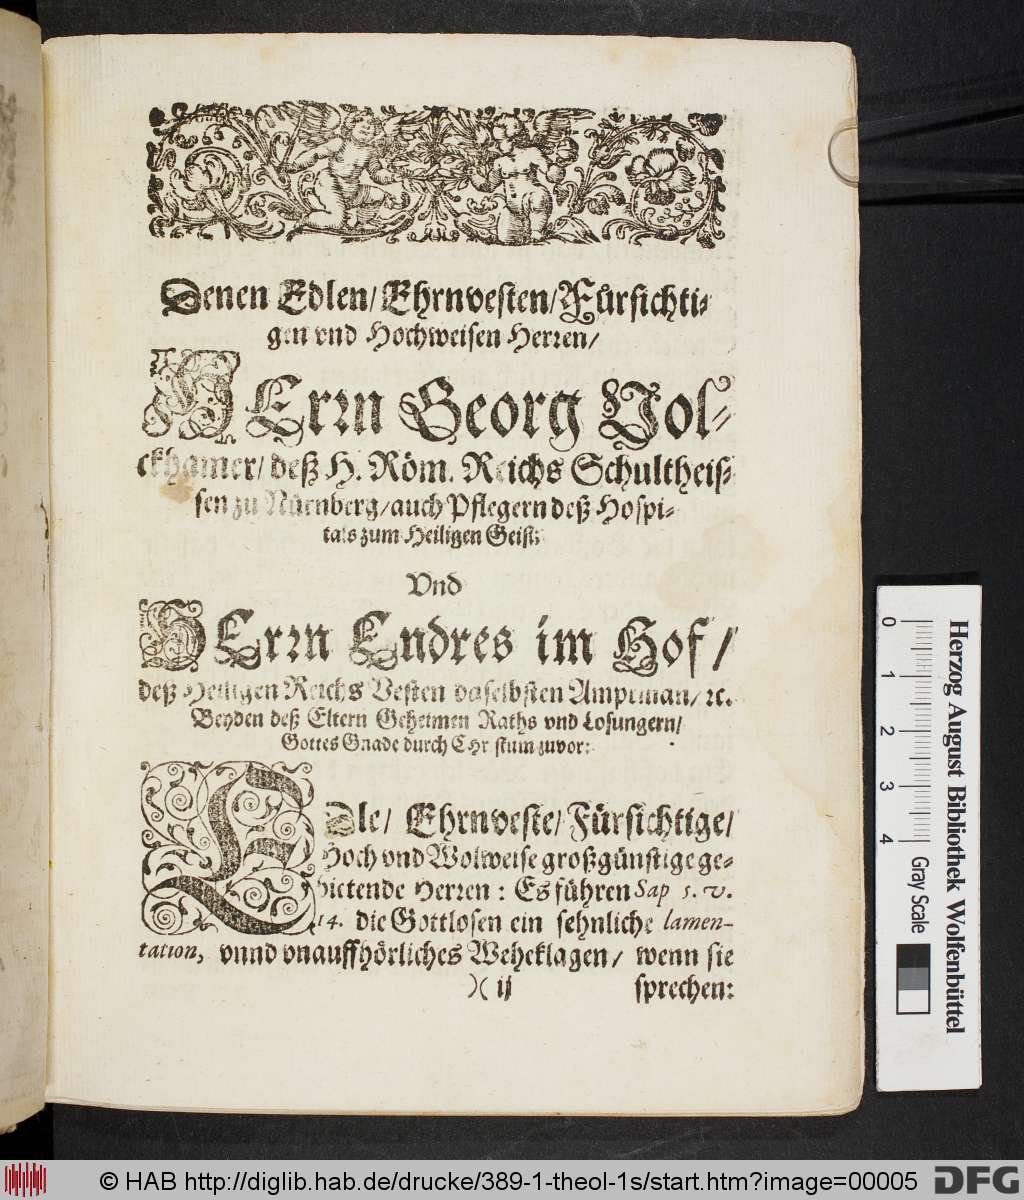 Denen Edlen/Ehrnvesten/Fürsichti-
gen vnd Hochweisen Herren/
HErrn Georg Vol-
ckhamer/deß H. Röm. Reichs Schultheis-
sen zu Nürnberg/auch Pflegern deß Hospi-
tals zum Heiligen Geist:
Vnd
HErrn Endres im Hof/
deß Heiligen Reichs Vesten daselbsten Amptman/ꝛc.
Beyden deß Eltern Geheimen Raths vnd Losungern/
Gottes Gnade durch Christum zuvor:
EDle/ Ehrnveste/Fürsichtige/
Hoch vnd Wolweise großgünstige ge-
bietende Herren: Es führen Sap 5. v.
14. die Gottlosen ein sehnliche lamen-
tation, vnnd vnauffhörliches Wehcklagen/ wenn sie
)( ij sprechen:
0 1 2 3 4
Herzog August Bibliothek Wolfenbüttel
Gray Scale
© HAB http://diglib.hab.de/drucke/389-1-theol-1s/start.htm?image=00005
DFG